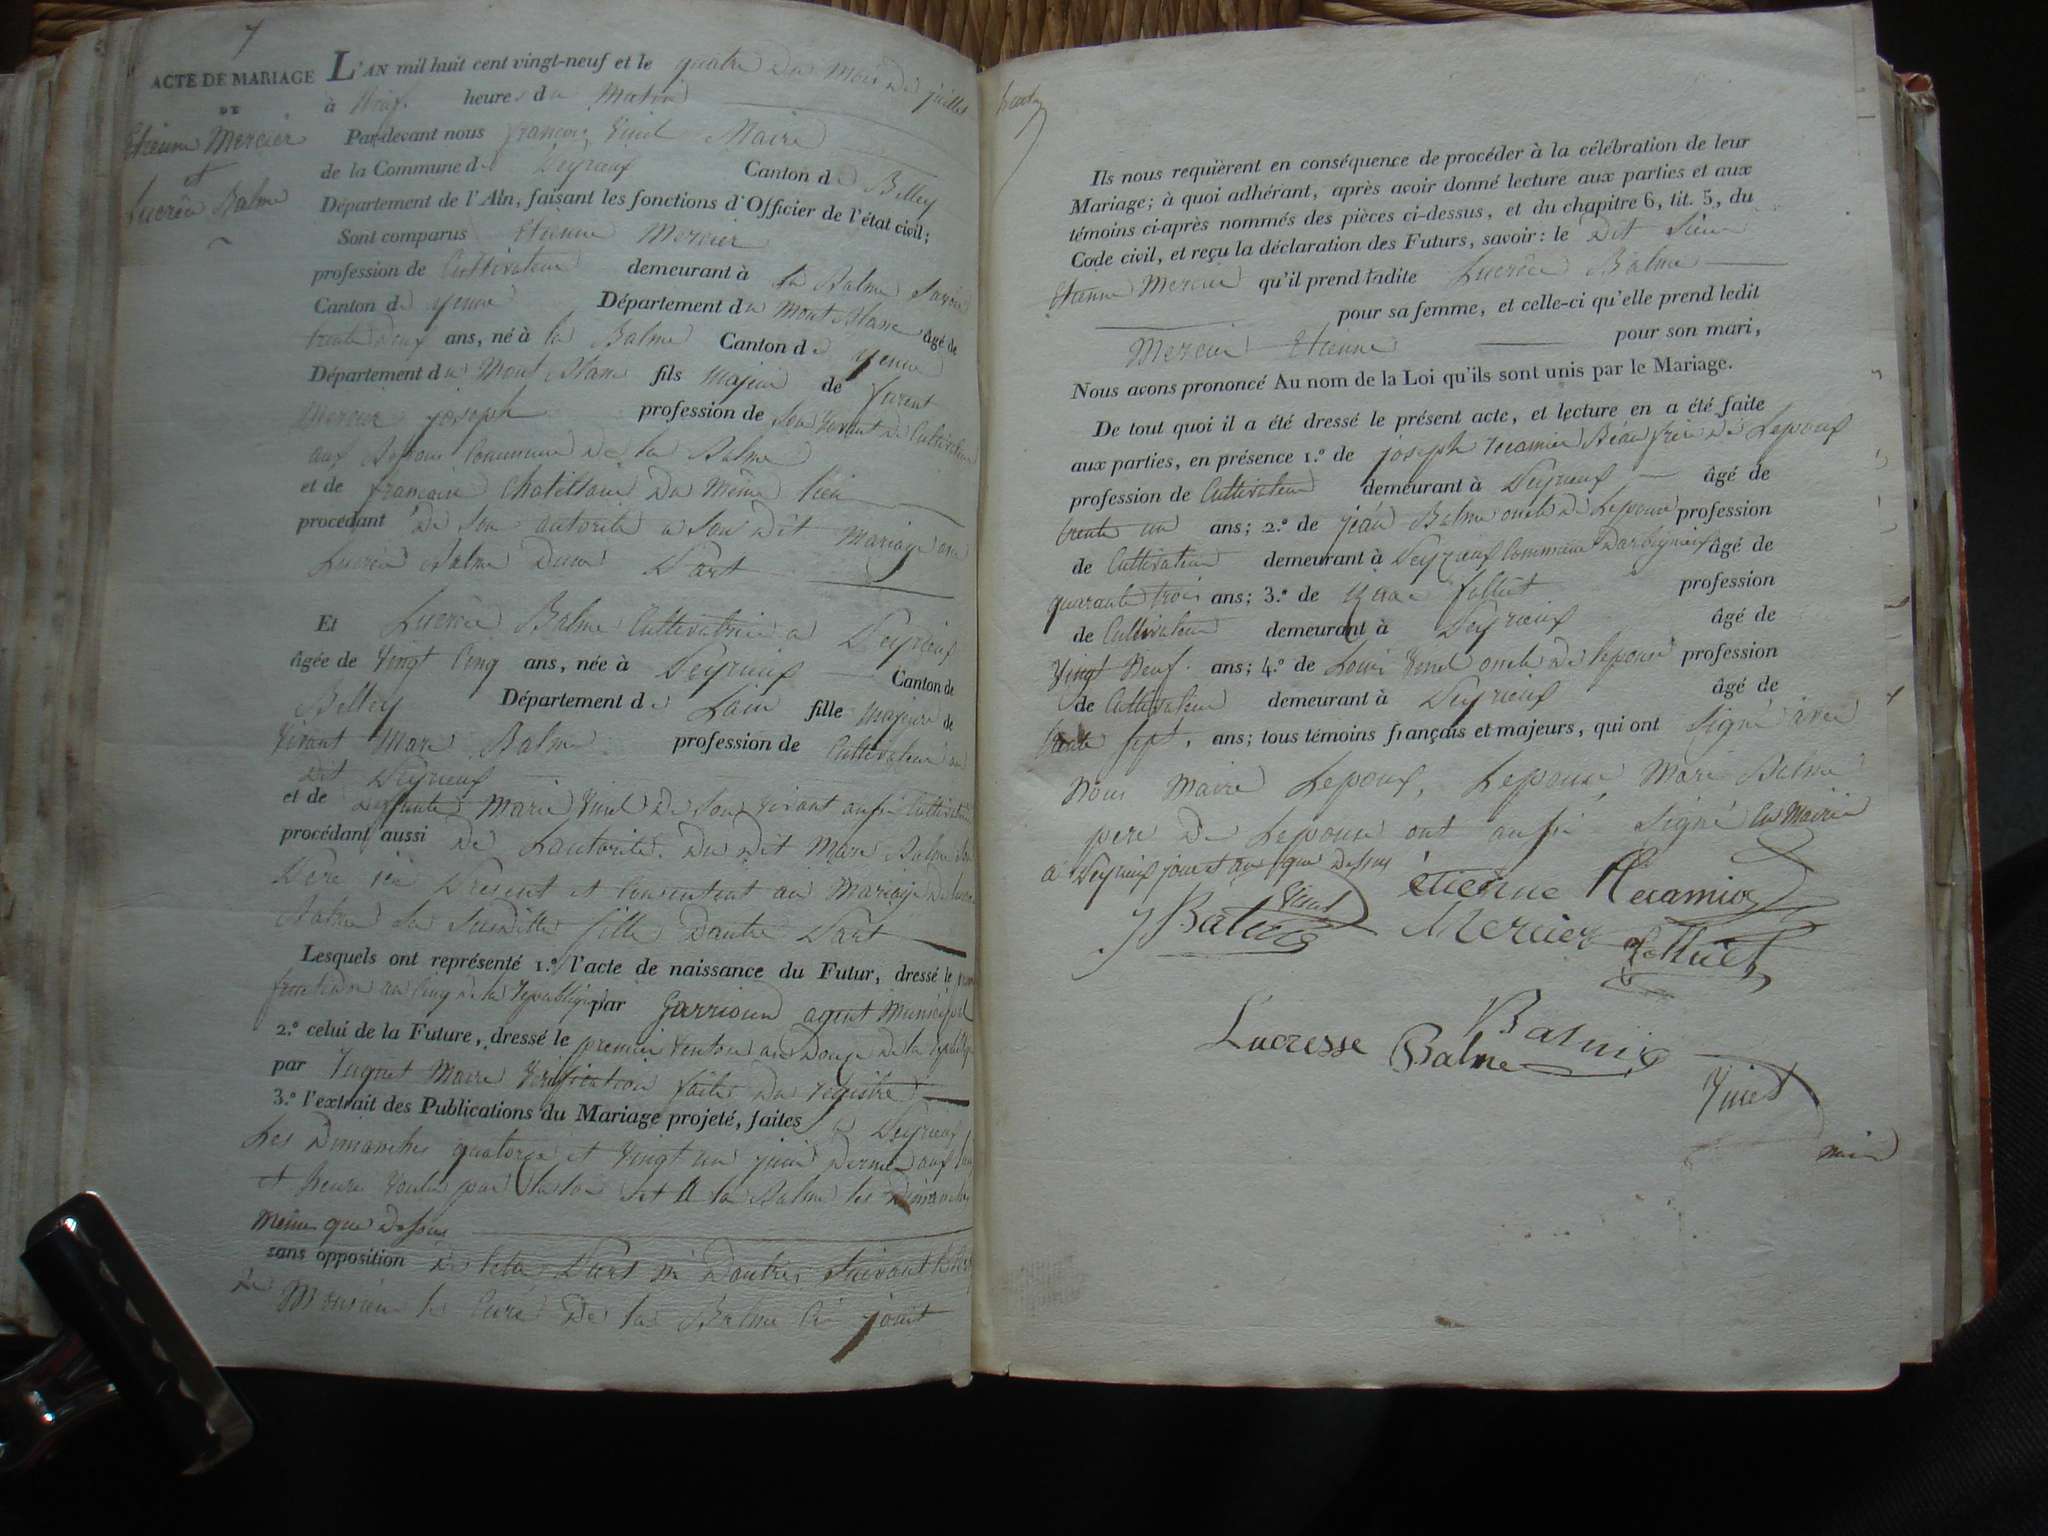 7
ACTE DE MARIAGE
DE
Etienne Mercier
et
Lucrêce Balme
L'AN mil huit cent vingt-neuf et le quatre du mois de juillet
à heures du Matin
Par-devant nous françois Vuil Maire
de la Commune de Peyrieux Canton de Belley
Département de l'Ain, faisant les fonctions d'Officier de l'état civil;
Sont comparus Etienne Mercier
profession de Cultivateur demeurant à la Balme Savoie
Canton de yenne Département du Mont Blanc âgé de
trente deux ans, né à la Balme Canton de yenne
Département du Mont Blanc fils majeur de
Mercier joseph profession de son vivant de Cultivateur
aux Commune de la Balme
et de françoise Chatillain du même lieu
procédant de son autorité a son dit Mariage avec
Lucrêce Balme d'une Part
Et Lucrêce Balme Cultivatrice a Peyrieux
âgée de Vingt Cinq ans, née à Peyrieux Canton de
Belley Département de Lain fille majeure de
vivant Marc Balme profession de Cultivateur au
dit Peyrieux
et de deffunte Marie Vuil de son vivant aussi Cultivatrice
procédant aussi de Lautorité du dit Marc Balme son
Pere ici Présent et Consentent au Mariage de Lucrêce
Balme sa susditte fille Dautre Part
Lesquels ont représenté 1.º l'acte de naissance du Futur, dressé le
fructidor an Cinq de la République par Garrioud agent Municipal
2.º celui de la Future, dressé le premier Ventose an Douze de la République
par Tuquet Maire Vérification faite du registre
3.º l'extrait des Publications du Mariage projeté, faites a Peyrieux
Les Dimanches quatorze et Vingt un juin dernier aux
et heure Voulu par la loi et A la Balme les Dimanches
même que dessus
sans opposition de Part ni Dautre, Suivant le
de Monsieur le Curé de la Balme Ci joint
Ils nous requièrent en conséquence de procéder à la célébration de leur
Mariage; à quoi adhérant, après avoir donné lecture aux parties et aux
témoins ci-après nommés des pièces ci-dessus, et du chapitre 6, tit. 5, du
Code civil, et reçu la déclaration des Futurs, savoir: le dit Sieur
Etienne Mercier qu'il prend ladite Lucrêce Balme
pour sa femme, et celle-ci qu'elle prend ledit
Mercier Etienne pour son mari,
Nous avons prononcé Au nom de la Loi qu'ils sont unis par le Mariage.
De tout quoi il a été dressé le présent acte, et lecture en a été faite
aux parties, en présence 1.º de joseph recamier Beau frere de Lepoux
profession de Cultivateur demeurant à Peyrieux âgé de
trente un ans; 2.º de jean Balme oncle de Lepouse profession
de Cultivateur demeurant à Peyzieux Commune Darbignieu âgé de
quarante trois ans; 3.º de follut profession
de Cultivateur demeurant à Peyrieux âgé de
Vingt Neuf ans; 4.º de Louis Vuil oncle de lepouse profession
de Cultivateur demeurant à Peyrieux âgé de
trente sept, ans; tous témoins français et majeurs, qui ont Signé avec
Nous Maire Lepoux, Lepouse, Marc Balme
pere de Lepouse ont aussi Signé En Mairie
à Peyrieux jour et an que Dessus
J Balme Vuil étienne Recamier
Mercier follut
Lucresse Balme Balme
Vuil
maire